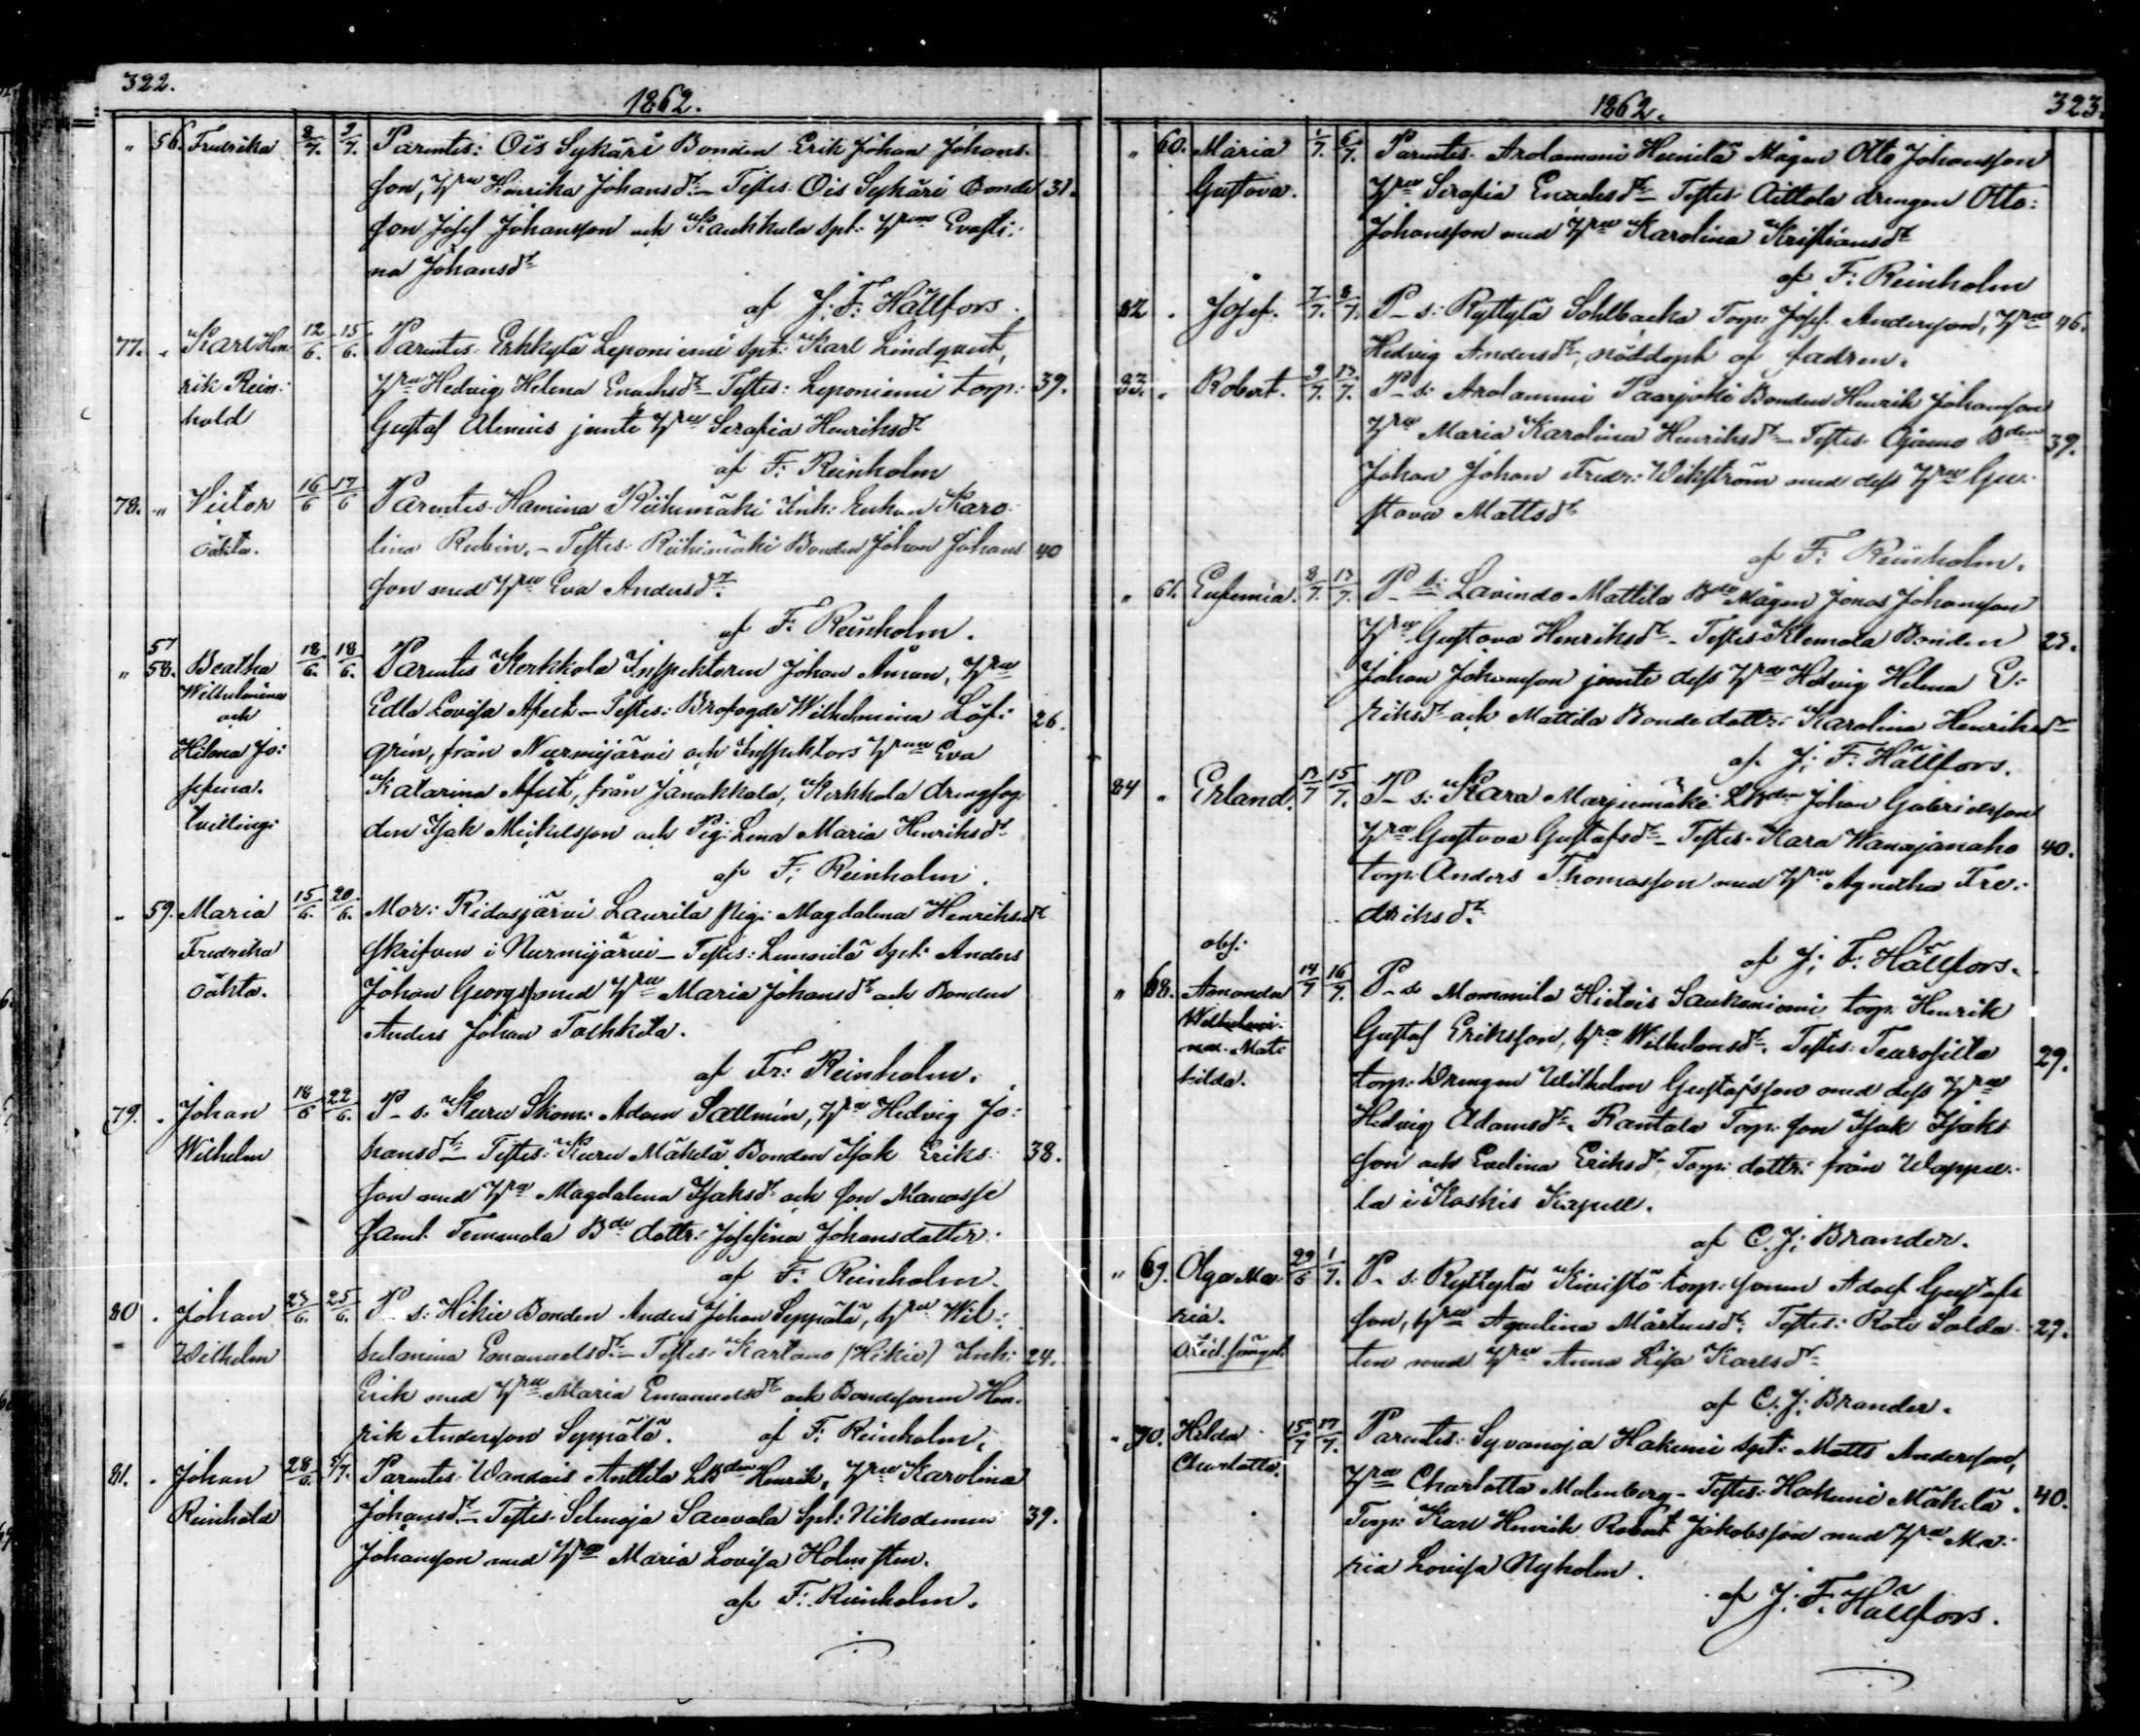 322.
1862.
" 56. Fredrika 8/7. 9/7. Parentes: Ois Sykäri Bonden Erik Johan Johans-
son, Hru Henrika Johansdr - Testes: Ois Sykäri Bonde 31.
son Josef Johansson och Kaukkula Spt: Hrun Evasti-
na Johansdr
af J: F: Hällfors.
77. " Karl Hen- 12/6. 15/6. Parentes: Erkkylä Leponiemi Spt: Karl Lindqvist,
rik Rein- Hru Hedvig Helena Enochsdr - Testes: Leponiemi torp: 39.
hold Gustaf Alenius jemte Hru Serafia Henriksdr
af F: Reinholm
78. " Victor 16/6 17/6 Parentes. Hamina Riihimäki Inh: Enkan Karo-
oäkta. lina Rubin. - Testes: Riihimäki Bonden Johan Johans 40
son med Hru Eva Andersdr.
af F: Reinholm.
" 57 58. Beatha 18/6. 18/6. Parentes Kerkkola Inspektoren Johan Åman, Hru
Wilhelmina Edla Lovisa - Testes: Brofogde Wilhelmina Löf- 26.
och
Hilma Jo- grén, från Nurmijärvi och Inspektors Hrun Eva
sefina. Katarina från Janakkala, Kerkkola drengfog-
tvillingi den Isak Mickelsson och Pig: Lena Maria Henriksdr
af F: Reinholm.
" 59. Maria 15/6. 20/6. Mor: Ridasjärvi Laurila pig: Magdalena Henriksdr
Fredrika skrifven i Nurmijärvi - Testes: Lemonilä Spt: Anders
oäkta. Johan Georgs med Hru Maria Johansdr och Bonden
Anders Johan Tackkila.
af Fr: Reinholm.
79. " Johan 18/6 22/6. P_s: Kuru Skom: Adam Sallmén, Hru Hedvig Jo-
Wilhelm hansdr - Testes: Kuru Mäkelä Bonden Isak Eriks- 38.
son med Hru Magdalena Isaksdr och son Manasse
samt Bde dottr: Josefina Johansdotter.
af F: Reinholm.
80 . Johan 23/6. 25/6. P_s: Hikie Bonden Anders Johan Seppälä, Hru Wil-
Wilhelm helmina Emanuelsdr - Testes: Kartano (Hikie) Inh: 24.
Erik med Hru Maria Emanuelsdr och Bondesonen Hen-
rik Andersson Seppälä. af F: Reinholm.
81. . Johan 28/6. 5/7. Parentes: Wandais Anttila LBden Henrik, Hru Karolina
Reinhold Johansdr - Testes: Selmoja Saavala Spt: Nikodemus 39.
Johansson med Hru Maria Lovisa Holmsten.
af F: Reinholm.
1862. 323.
" 60. Maria 1/7. 6/7. Parentes. Arolammi Heinilä Mågen Otto Johansson
Gustova. Hru Serafia Enochsdr - Testes: Aittola drengen Otto
Johansson med Hru Karolina Kristiansdr
af F: Reinholm
82 . Josef. 7/7. 8/7. P_s: Ryttylä Sohlbacka Torp: Josef Andersson, Hru 46.
Hedvig Andersdr, nöddöpt af fadren.
83. " Robert. 9/7. 13/7. P_s: Arolammi Paarjoki Bonden Henrik Johansson
Hru Maria Karolina Henriksdr - Testes: Bden 39.
Johan Johan Fredr: Wikström med dess Hru Gu-
stava Mattsdr
af F: Reinholm.
" 61. Eufemia. 8/7. 13/7. P_s: Lavindo Mattila Bde Mågen Jonas Johansson
Hru Gustova Henriksdr - Testes: Klemola Bonden 23.
Johan Johansson jemte dess Hru Hedvig Helena E-
riksdr och Mattila Bonde dottr: Karolina Henriksdr
af J: F: Hällfors.
84 " Erland. 13/7 15/7. P_s: Kara Marjumäki LBden Johan Gabrielsson
Hru Gustova Gustafsdr - Testes: Kara Wanajanaho 40.
torp: Anders Thomasson med Hru Agnetha Fre-
driksdr.
af J: F: Hällfors.
obs:
" 68. Amanda 14/7 16/7. P_s Mommila Hietois Saukoniemi torp: Henrik
Wilhelmi- Gustaf Eriksson, Hru Wilhelmsdr. Testes: 29.
na. Mat-
hilda. torp: Drengen Wilhelm Gustafsson med dess Hru
Hedvig Adamsdr. Rantala Torp: son Isak Isaks
son och Evelina Eriksdr, Torp: dottr: från
la i Koskis Kapell.
af C. J: Brander.
" 69. Olga Ma- 29/6 1/7. P_s: Ryttylä Kivistö torp: sonen Adolf Gustafs
ria. son, Hru Aqvilina Mårtensdr. Testes: Rote Solda- 27.
ten med Hru Anna Lisa Karlsdr
af C. J: Brander.
" 70. Hilda 15/7 17/7. Parentes: Syvänoja Hakuni Spt: Matts Andersson,
Charlotta. Hru Charlotta Malmberg - Testes: Hakuni Mäkelä 40.
Torp: Karl Henrik Robert Jakobsson med Hru Ma-
ria Lovisa Nyholm.
af J: F: Hällfors.